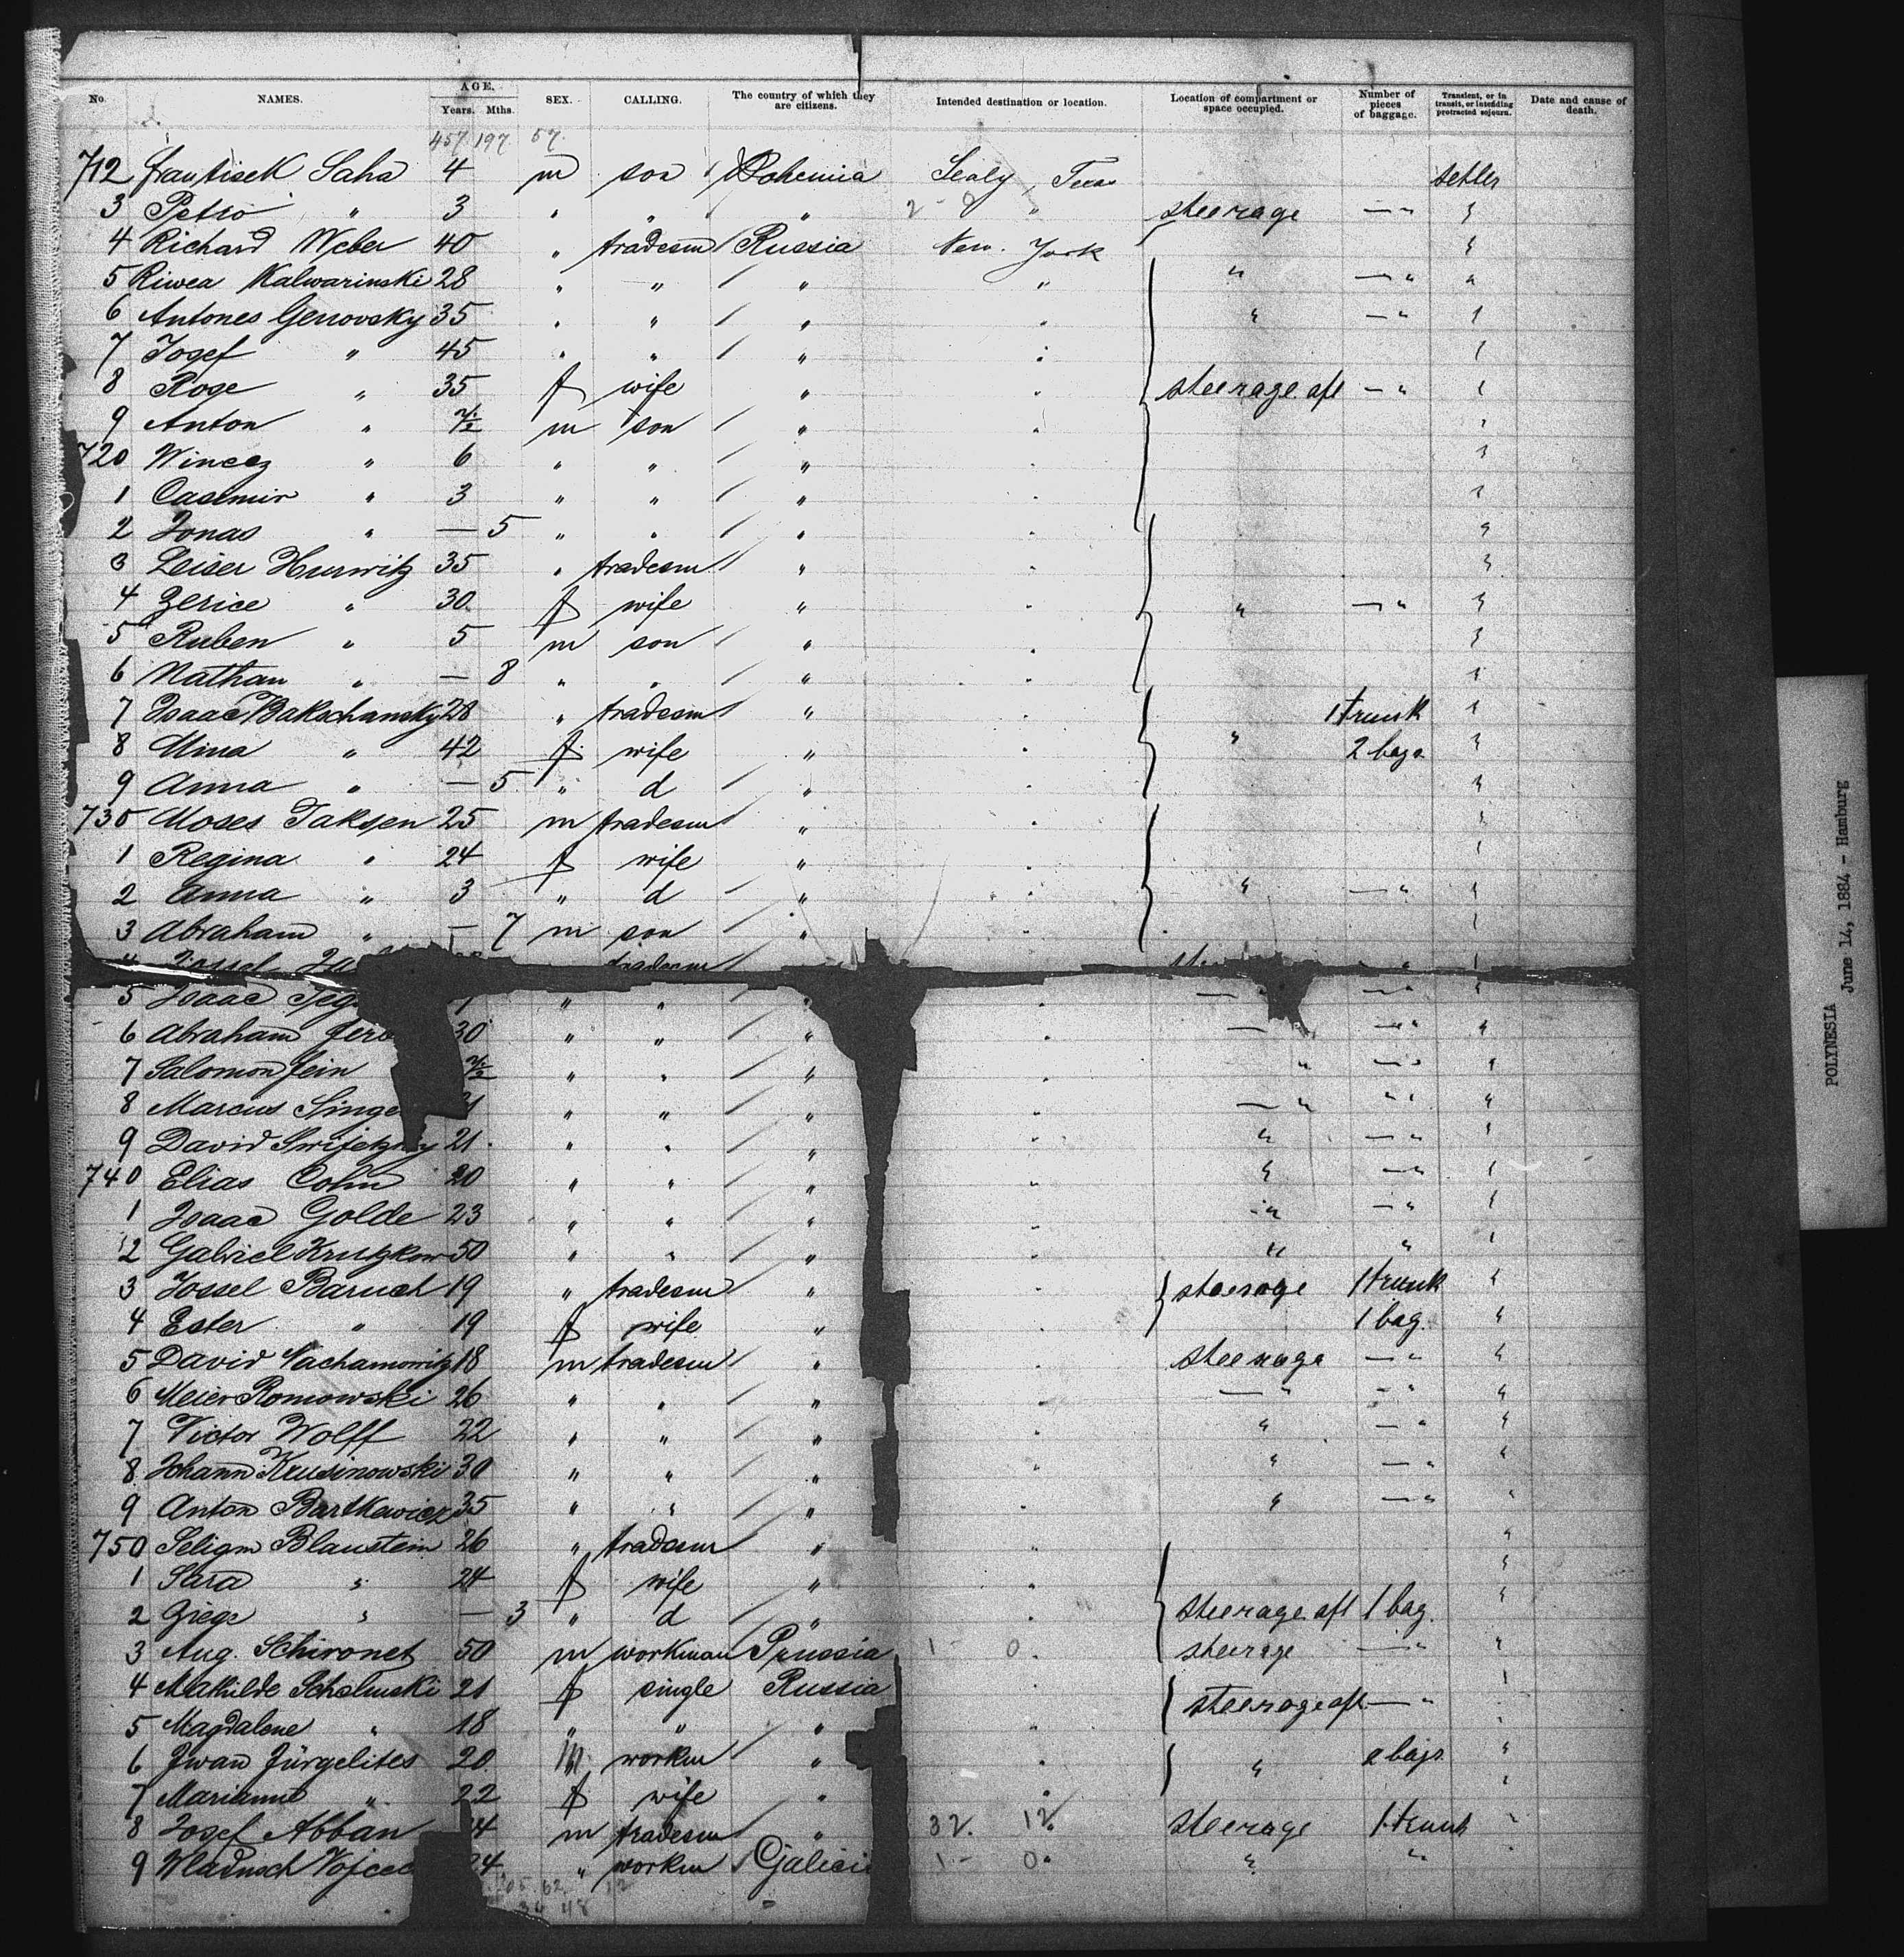 No. NAMES. AGE. Years. Mths. SEX. CALLING. The country of which they are citizens. Intended destination or location. Location of compartment or space occupied. Number of pieces of baggage. Transient, or in transit, or intending protracted sojourn. Date and cause of death.
457 197 57.
712 Frantisek Saha 4 m son Bohemia Sealy, Texas settler
3 Petro " 3 " " " " steerage — "
4 Richard Weber 40 " tradesm Russia New. York
5 Riwea Kalwarinski 28 " " " " " — " "
6 Antones Gerrovsky 35 " " " " " — "
7 Josef " 45 " " " "
8 Roge " 35 f wife " " steerage aft — "
9 Anton " 7/2 m son " "
720 Wincez " 6 " " " "
1 Casemir " 3 " " " "
2 Jonas " — 5 " " " "
3 Leiser Hurwitz 35 " tradesm " "
4 Zerice " 30. f wife " " " — "
5 Ruben " 5 m son " "
6 Nathan " — 8 " " " "
7 Isaac Bakschansky 28 " tradesm " 1 trunk
8 Mina " 42 f. wife " " " 2 bags
9 Anna " — 5 " d " "
730 Moses Taksen 25 m tradesm " "
1 Regina " 24 f wife " "
2 Anna " 3 " d " " " — "
3 Abraham " — 7 m son " "
4 Jossel tradesm
5 Isaac " " " " — " — "
6 Abraham 30 " " " " — — "
7 Salomon Fein 7/2 " " " " " — "
8 Marcus Singe " " " " — " " "
9 David 21. " " " " " — "
740 Elias Cohn 20 " " " " " — "
1 Isaac Golde 23 " " " " " — "
2 Gabriel Krugkow 50 " " " " " "
3 Jossel Baruch 19 " tradesm " " steerage 1 trunk
4 Ester " 19 f wife " " 1 bag.
5 David Nachamowitz 18 m tradesm " " steerage — "
6 Meier Romowski 26 " " " — " — "
7 Victor Wolff 22 " " " " " — "
8 Johann Krusinowski 30 " " " " " — "
9 Anton Bartkawicz 35 " " " " " — "
750 Seligm Blaustein 26 " tradesm " "
1 Sara " 24 f wife " "
2 Ziege " — 3 " d " " steerage aft 1 bag.
3 Aug. Schironet 50 m workman Prussia 1 - 0 . steerage — "
4 Mathilde Scholmski 21 f single Russia " steerage aft — "
5 Magdalene " 18 " " " "
6 Iwan Jürgelites 20 m workm " " " 2 bags
7 Marianne " 22 f wife " "
8 Josef Abban 24 m tradesm " 32. 12 steerage 1 trunk
9 24 " workm Galici 1 - 0 " "
POLYNESIA June 14, 1884 - Hamburg